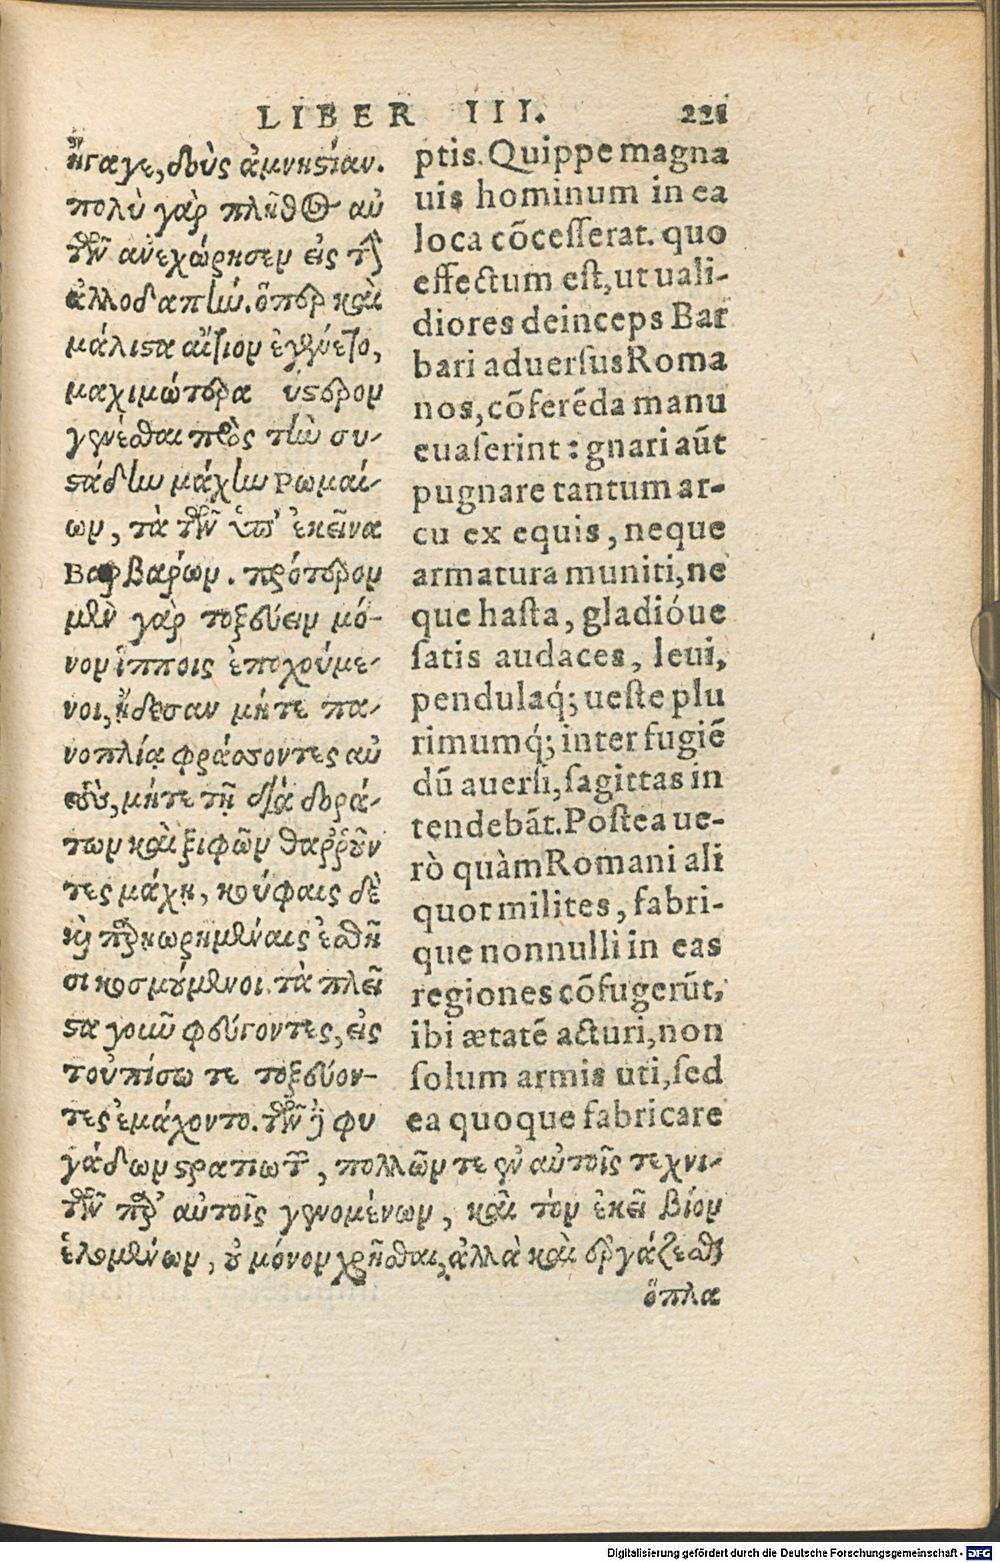 LIBER III. 221
ἤγαγε, δοὺς ἀμνηστίαν.
πολὺ γὰρ πλῆθος αὐ
τῶν ἀνεχώρησεν εἰς τὴν
ἀλλοδαπὴν. ὅπερ καὶ
μάλιστα αἴτιον ἐγένετο,
μαχιμώτερα ὕστερον
γενέσθαι πρὸς τὴν συ-
στάδην μάχην Ρωμαί-
ων, τὰ τῶν ὑπ' ἐκεῖνα
Βαρβαρίων. πρότερον
μὲν γὰρ τοξεύειν μό-
νον ἵπποις ἐποχούμε-
νοι, ἤδεσαν μήτε πα-
νοπλία φράσσοντες αὐ
τοὺς, μήτε τῇ διὰ δορά-
των καὶ ξιφῶν θαῤῥοῦν
τες μάχῃ, κούφαις δὲ
καὶ παρῃωρημέναις ἐσθῆ
σι κοσμούμενοι. τὰ πλεῖ
στα γοιοῦ φεύγοντες, εἰς
τοὐπίσω τε τοξεύον-
τες ἐμάχοντο. τῶν δὲ φυ
γάδων στρατιωτῶν, πολλῶν τε σὺν αὐτοῖς τεχνι-
τῶν παρ' αὐτοῖς γενομένων, καὶ τὸν ἐκεῖ βίον
ἑλομένων, οὐ μόνον χρῆσθαι, ἀλλὰ καὶ ἐργάζεσθαι
ὅπλα
ptis. Quippe magna
uis hominum in ea
loca cōcesserat. quo
effectum est, ut uali-
diores deinceps Bar
bari aduersus Roma
nos, cōferēda manu
euaserint: gnari aūt
pugnare tantum ar-
cu ex equis, neque
armatura muniti, ne
que hasta, gladióue
satis audaces, leui,
pendulaq́; ueste plu
rimumq́; inter fugiē
dū auersi, sagittas in
tendebāt. Postea ue-
rò quàm Romani ali
quot milites, fabri-
que nonnulli in eas
regiones cōfugerūt,
ibi ætatē acturi, non
solum armis uti, sed
ea quoque fabricare
Digitalisierung gefördert durch die Deutsche Forschungsgemeinschaft - DFG